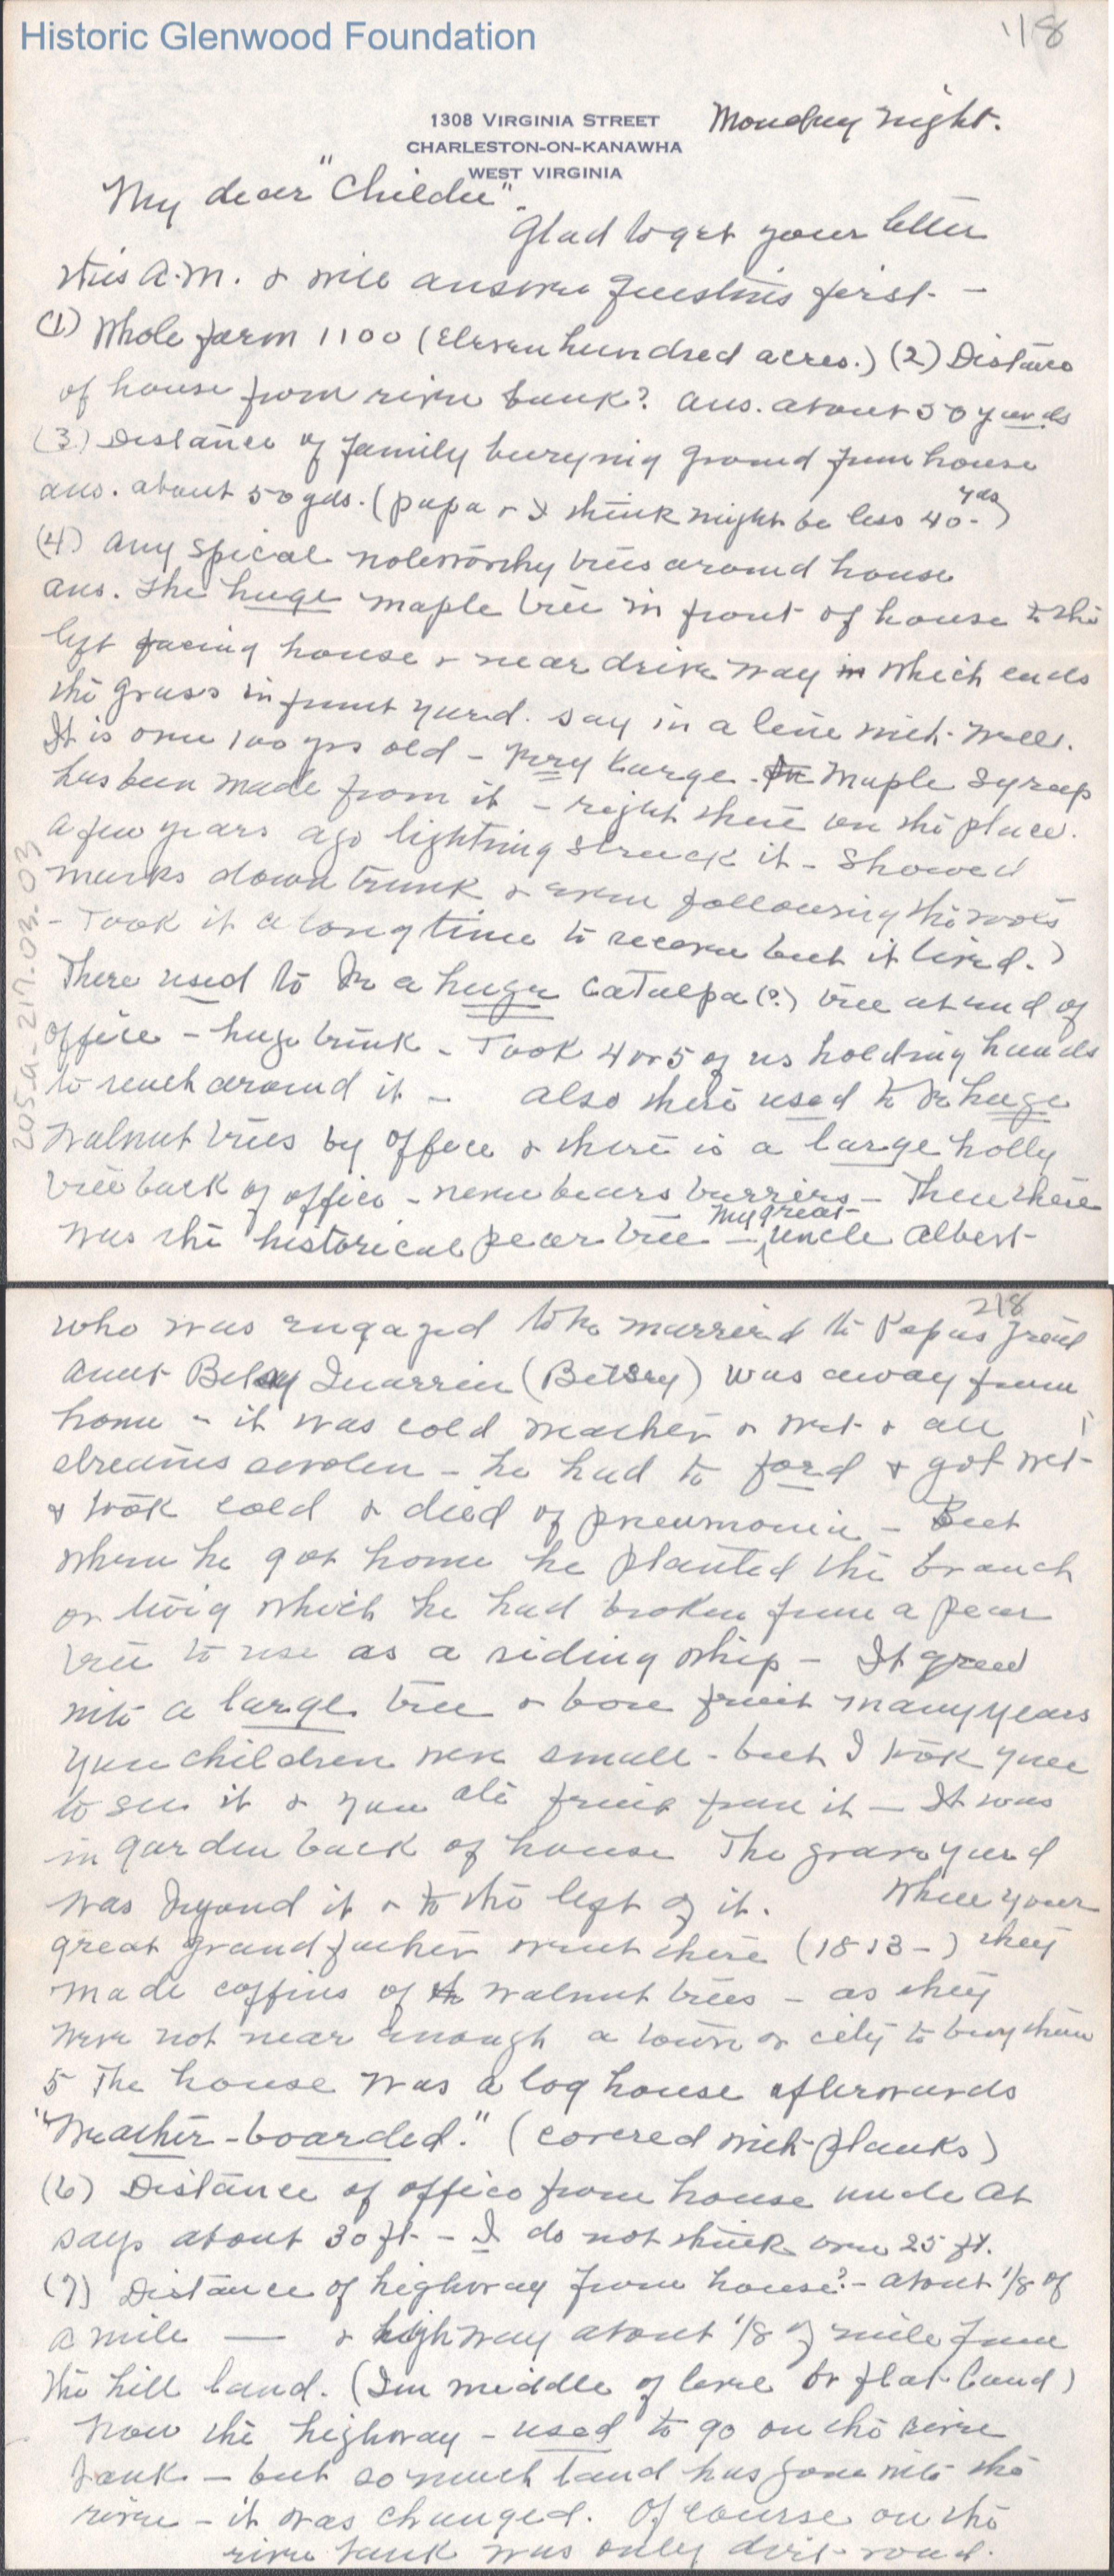 Historic Glenwood Foundation
1/8
1308 VIRGINIA STREET
CHARLESTON-ON-KANAWHA
WEST VIRGINIA
Monday night.
My dear "Childie".
Glad to get your letter
this A.M. & will answer questions first. -
(1) Whole farm 1100 (Eleven hundred acres.) (2) Distance
of house from river bank? ans. about 50 yards
(3) Distance of family burying ground from house
ans. about 50 yds. (papa & I think might be less 40 - yds)
(4) any spical noteworthy trees around house
ans. The huge maple tree in front of house to the
left facing house & near drive way in which ends
the grass in front yard. say in a line with well.
It is over 100 yrs old - very large - Maple Syrup
has been made from it - right there on the place.
a few years ago lightning struck it - showed
marks down trunk & even following the roots
- Took it a long time to recover but it lived.)
There used to be a huge Catalpa (?) tree at end of
office - huge trunk - Took 4 or 5 of us holding hands
to reach around it - also there used to be huge
walnut trees by office & there is a large holly
tree back of office - never bears burriers - Then there
was the historical pear tree - my great uncle Albert
205.a-217.03.03
2/8
who was engaged to be married to Papas great
aunt Betsy Quarrier (Betsey) was away from
home - it was cold weather & wet & all
streams swolen - he had to ford & got wet
& took cold & died of pneumonia - But
when he got home he planted the branch
or twig which he had broken from a pear
tree to use as a riding whip - It grew
into a large tree & bore fruit many years
you children were small - but I took you
to see it & you ate fruit from it - It was
in garden back of house The grave yard
was beyond it & to the left of it. When your
great grandfather went there (1813-) they
made coffins of walnut trees - as they
were not near enough a town or city to buy them
5 The house was a log house afterwards
"Weather-boarded." (covered with planks)
(6) Distance of office from house uncle At
says about 30 ft - I do not think over 25 ft.
(7) Distance of highway from house? - about 1/8 of
a mile — & highway about 1/8 of mile from
the hill land. (In middle of level or flat land)
now the highway - used to go on the river
bank - but so much land has gone into the
river - it was changed. Of course on the
river bank was only dirt road.